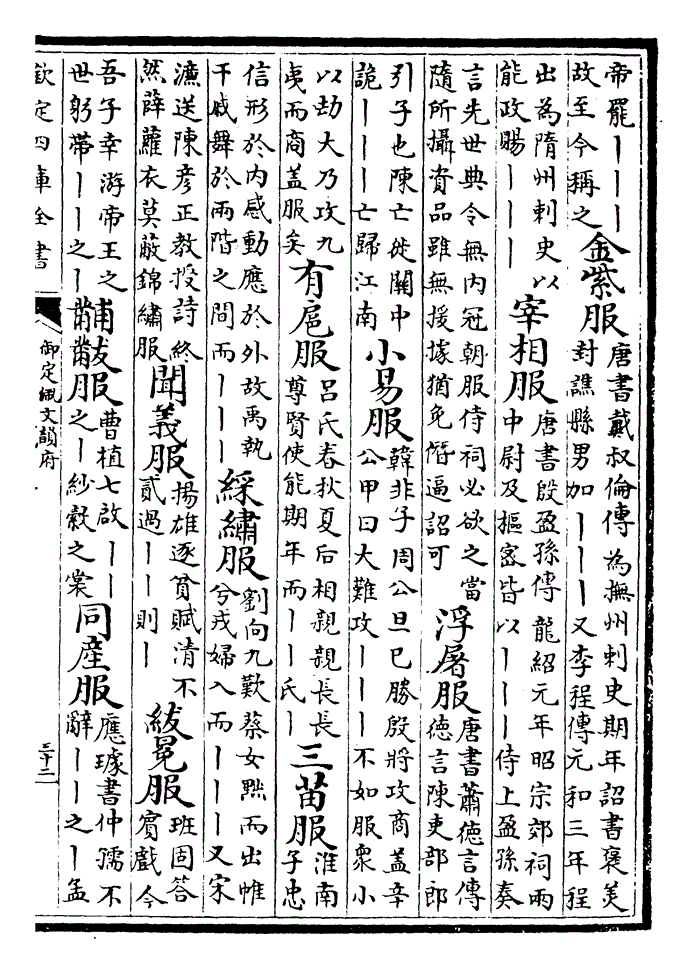 帝罷｜｜｜
故至今稱之
金紫服
唐書戴叔倫傳為撫州刺史期年詔書褒美
封譙縣男加｜｜｜又李程傳元和三年程
出為隋州刺史以
能政賜｜｜｜
宰相服
唐書殷盈孫傳龍紹元年昭宗郊祠兩
中尉及樞宻皆以｜｜｜侍上盈孫奏
言先世典令無内冠朝服侍祠必欲之當
隨所攝資品雖無援據猶免僭逼詔可
浮屠服
唐書蕭德言傳
德言陳吏部郎
引子也陳亡徙關中
詭｜｜｜亡歸江南
小易服
韓非子周公旦已勝殷將攻商蓋辛
公甲曰大難攻｜｜｜不如服衆小
以劫大乃攻九
夷而商蓋服矣
有扈服
吕氏春秋夏后相親親長長
尊賢使能期年而｜｜氏｜
三苗服
淮南
子忠
信形於内感動應於外故禹執
干戚舞於兩階之間而｜｜｜
綵繡服
劉向九歎蔡女黜而出帷
兮戎婦入而｜｜｜又宋
濂送陳彦正教授詩終
然薜蘿衣莫蔽錦繡服
聞義服
揚雄逐貧賦清不
貳過｜｜則｜
紱冕服
班固答
賓戲今
吾子幸游帝王之
世躬帶｜｜之｜
黼黻服
曹植七啟｜｜
之｜紗縠之裳
同産服
應璩書仲孺不
辭｜｜之｜孟
欽定四庫全書
御定佩文韻府
三十二